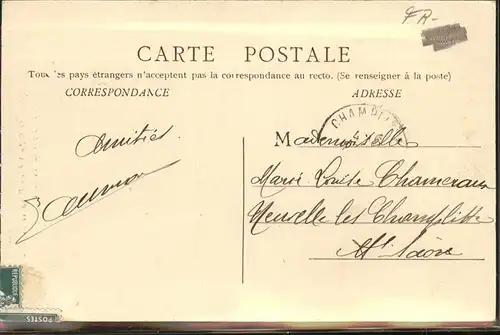 FR-
CARTE POSTALE
Tous les pays étrangers n'acceptent pas la correspondance au recto. (Se renseigner à la poste)
CORRESPONDANCE
ADRESSE
CHAMPLITTE
Amitiés
Mademoiselle
Marie Louise Chameroux
Neuvelle les Champlitte
Hte Saône
POSTES